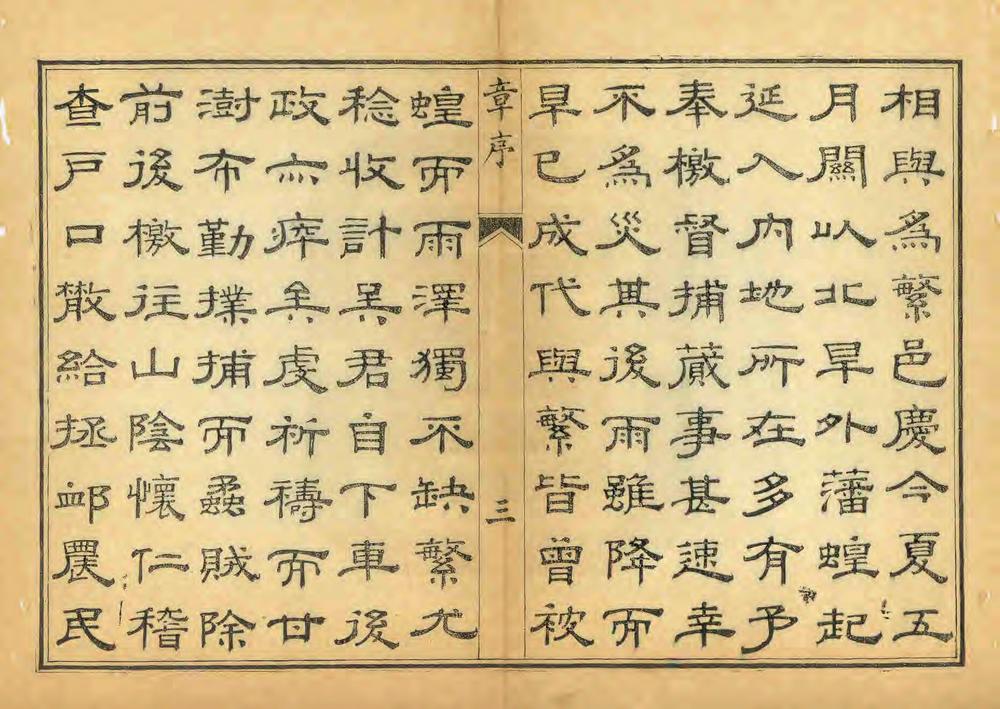 相與爲繁邑慶今夏五
月關以北旱外藩蝗起
延入內地所在多有予
奉檄督捕蕆事甚速幸
不爲災其後雨雖降而
旱已成代與繁皆曾被
章序 三
蝗而雨澤獨不缺繁尤
稔收計吳君自下車後
政亦瘁矣虔祈禱而甘
澍布勤撲捕而蟊賊除
前後檄往山陰懷仁稽
查戶口散給拯卹農民